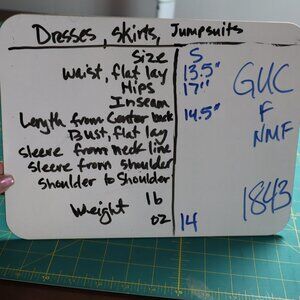 Dresses, Skirts, Jumpsuits
Size S
Waist, flat lay 13.5"
Hips 17"
Inseam
Length from Center back 14.5"
Bust, flat lay
sleeve from neck line
sleeve from shoulder
shoulder to shoulder
Weight lb
oz 14
GUC
F
NMF
1843